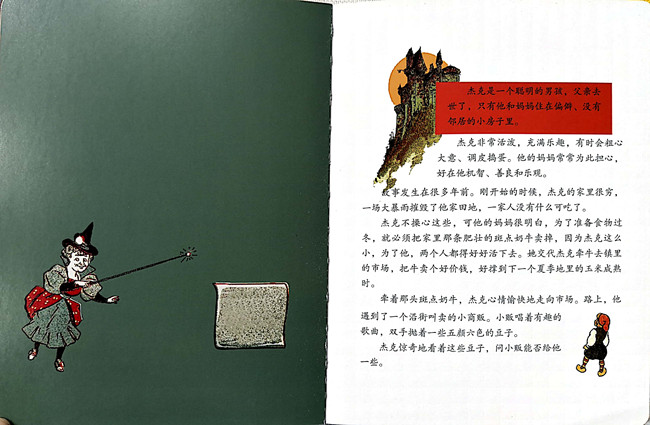 杰克是一个聪明的男孩，父亲去
世了，只有他和妈妈住在偏僻、没有
邻居的小房子里。
杰克非常活泼，充满乐趣，有时会粗心
大意、调皮捣蛋。他的妈妈常常为此担心，
好在他机智、善良和乐观。
故事发生在很多年前。刚开始的时候，杰克的家里很穷，
一场大暴雨摧毁了他家田地，一家人没有什么可吃了。
杰克不操心这些，可他的妈妈很明白，为了准备食物过
冬，就必须把家里那条肥壮的斑点奶牛卖掉，因为杰克这么
小，为了他，两个人都得好好活下去。她交代杰克牵牛去镇里
的市场，把牛卖个好价钱，好撑到下一个夏季地里的玉米成熟
时。
牵着那头斑点奶牛，杰克心情愉快地走向市场。路上，他
遇到了一个沿街叫卖的小商贩。小贩唱着有趣的
歌曲，双手抛着一些五颜六色的豆子。
杰克惊奇地看着这些豆子，问小贩能否给他
一些。